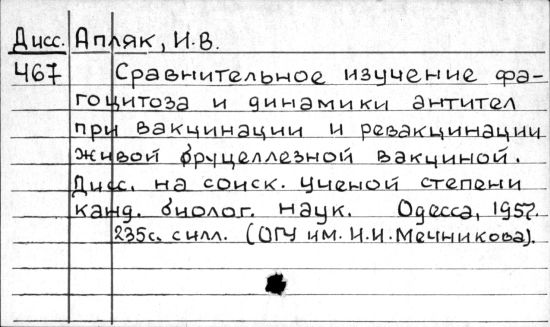 Дисс. Апляк, И.В.
467 Сравнительное изучение фа-
гоцитоза и динамики антител
при вакцинации и ревакцинации
живой бруцеллезной вакциной.
Дисс. на соиск. ученой степени
канд. биолог. наук. Одесса, 1957.
235с. с илл. (ОГУ им. И.И.Мечникова).